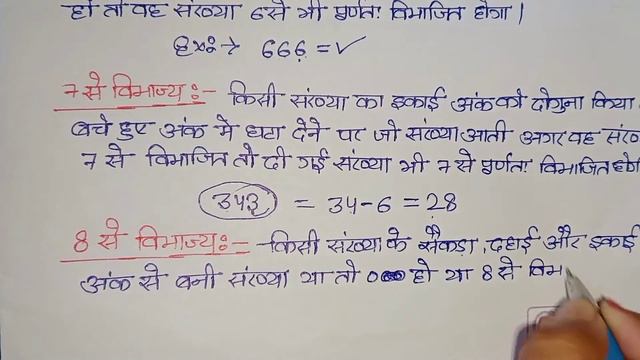 हो तो वह संख्या 6 से भी पूर्णतः विभाजित होगा।
Exः→ 666 = ✓
7 से विभाज्यः- किसी संख्या का इकाई अंक को दोगुना किया
बचे हुए अंक मे घटा देने पर जो संख्या आती अगर वह
7 से विभाजित तो दी गई संख्या भी 7 से पूर्णतः विभाजित
343 = 34-6 = 28
8 से विभाज्यः- किसी संख्या के सैकड़ा, दहाई और इकाई
अंक से बनी संख्या या तो 000 हो या 8 से